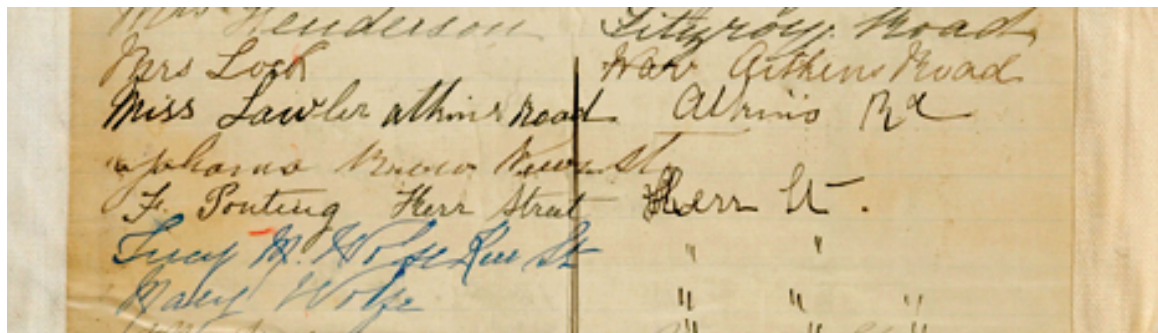 Mrs Henderson Fitzroy. Road
Mrs Lock Aitkens Road
Miss Lawler atkins Road Atkins Rd
Johanna St
F. Ponting Kerr Street Kerr St.
Lucy M. Wolfe Kerr St " "
Mary Wolfe " " "